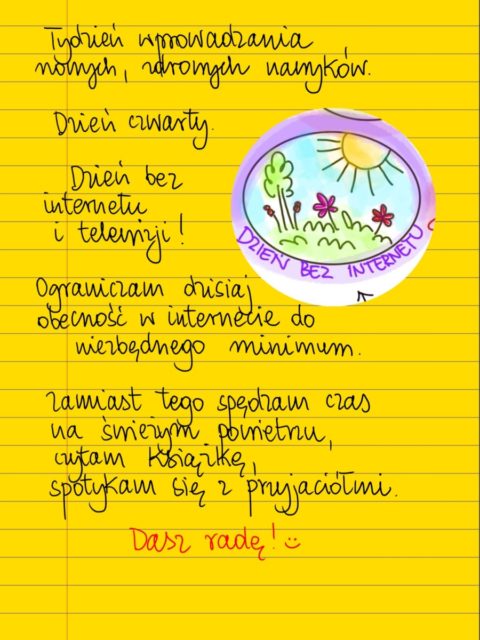 Tydzień wprowadzania
nowych, zdrowych nawyków.
Dzień czwarty.
Dzień bez
internetu
i telewizji!
DZIEŃ BEZ INTERNETU
Ograniczam dzisiaj
obecność w internecie do
niezbędnego minimum.
zamiast tego spędzam czas
na świeżym powietrzu,
czytam książkę,
spotykam się z przyjaciółmi.
Dasz radę! :)